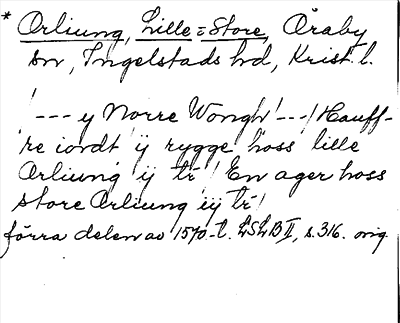 * Orliung, Lille = Store, Öraby
sn, Ingelstads hd, Krist. l.
! --- y Norre Wongh ! --- / Hauff-
re iordt ij rygge hoss lille
Orliung ij tr ! En ager hoss
store Orliung iij tr !
förra delen av 1570-t. LSLB II, s. 316. orig